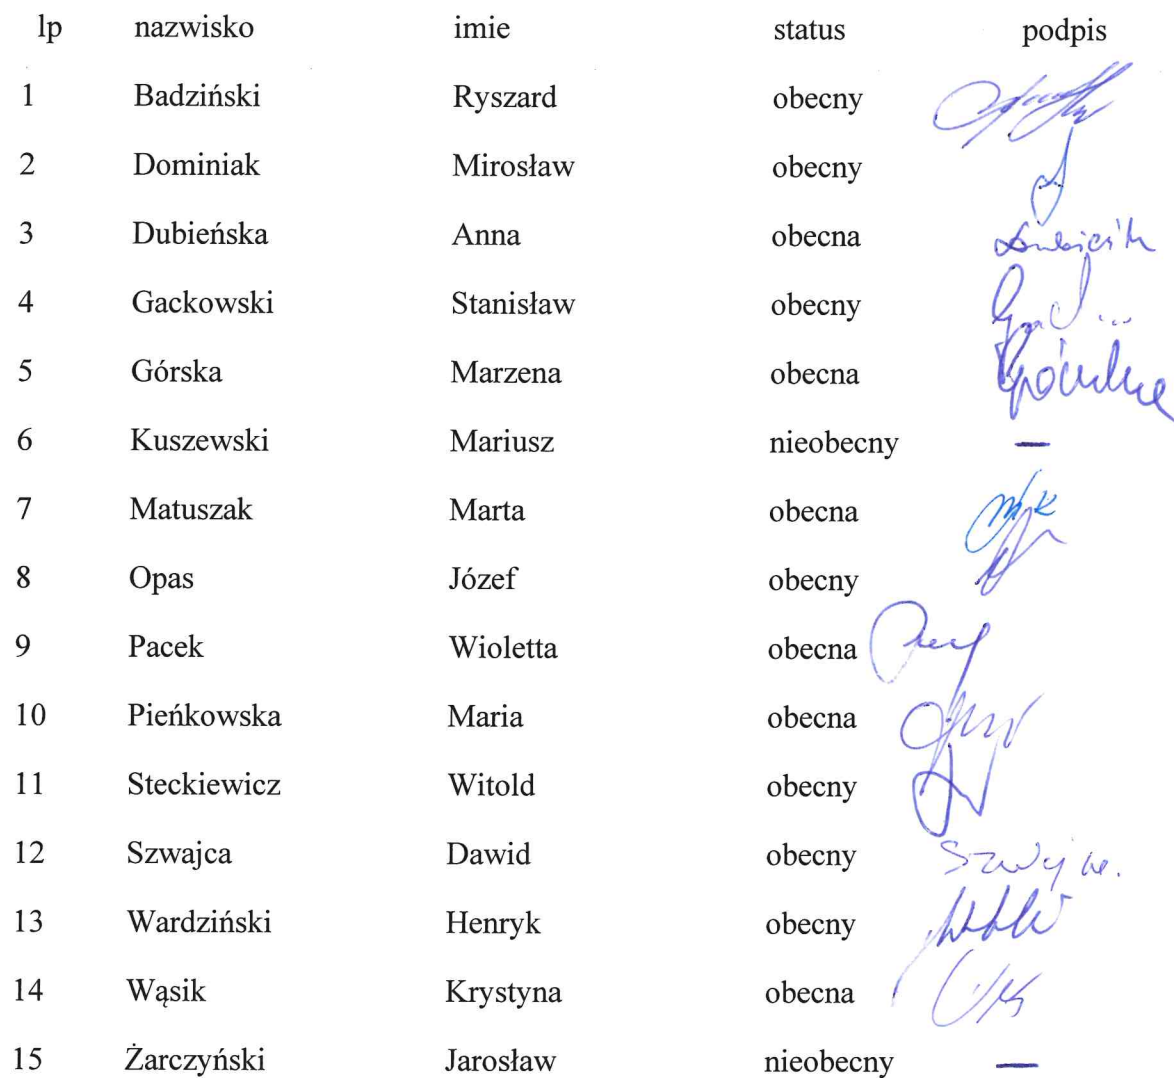 lp nazwisko imie status podpis
1 Badziński Ryszard obecny
2 Dominiak Mirosław obecny
3 Dubieńska Anna obecna
4 Gackowski Stanisław obecny
5 Górska Marzena obecna
6 Kuszewski Mariusz nieobecny —
7 Matuszak Marta obecna
8 Opas Józef obecny
9 Pacek Wioletta obecna
10 Pieńkowska Maria obecna
11 Steckiewicz Witold obecny
12 Szwajca Dawid obecny
13 Wardziński Henryk obecny
14 Wąsik Krystyna obecna
15 Żarczyński Jarosław nieobecny —